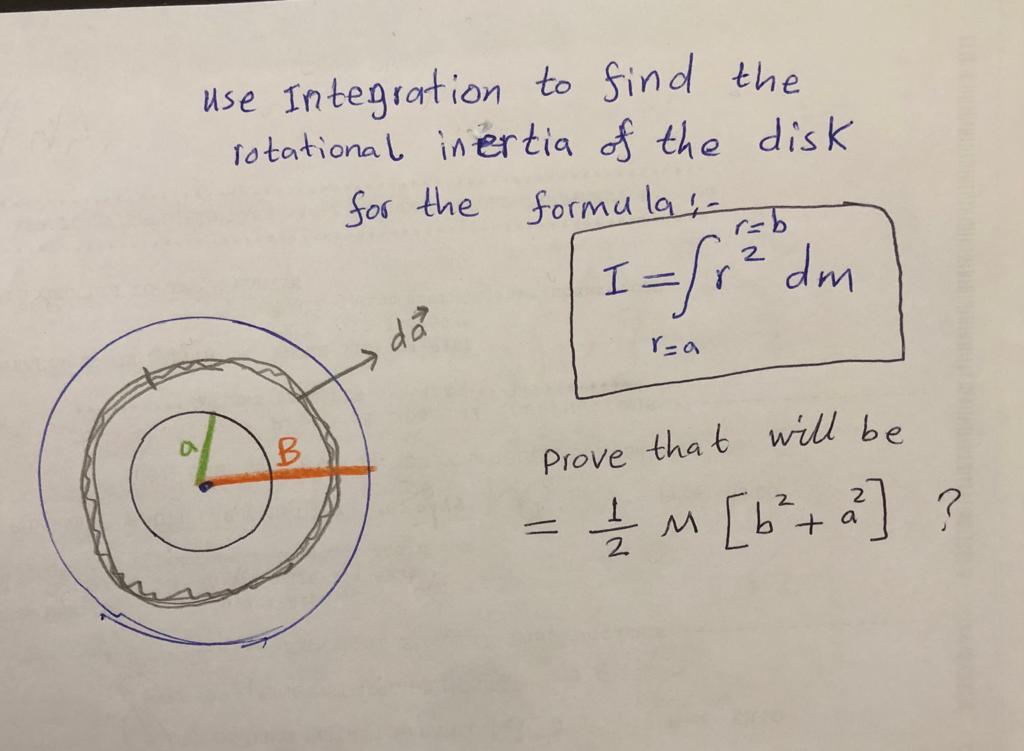 use Integration to find the
rotational inertia of the disk
for the formula :-
r=b
I = ∫ r² dm
r=a
da⃗
a
B
Prove that will be
= 1/2 M [b² + a²] ?